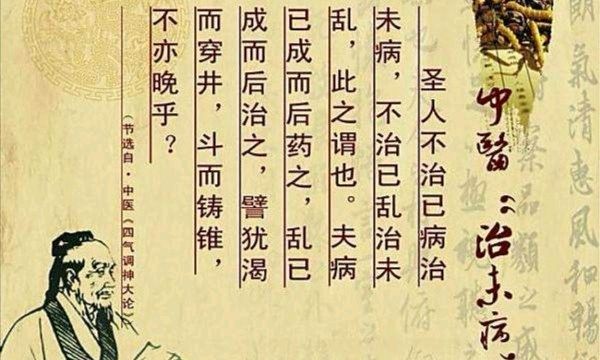 朗氣清惠風和暢
品類之盛
中醫“治未病”
圣人不治已病治
未病，不治已乱治未
乱，此之谓也。夫病
已成而后药之，乱已
成而后治之，譬犹渴
而穿井，斗而铸锥，
不亦晚乎？
（节选自·中医《四气调神大论》）